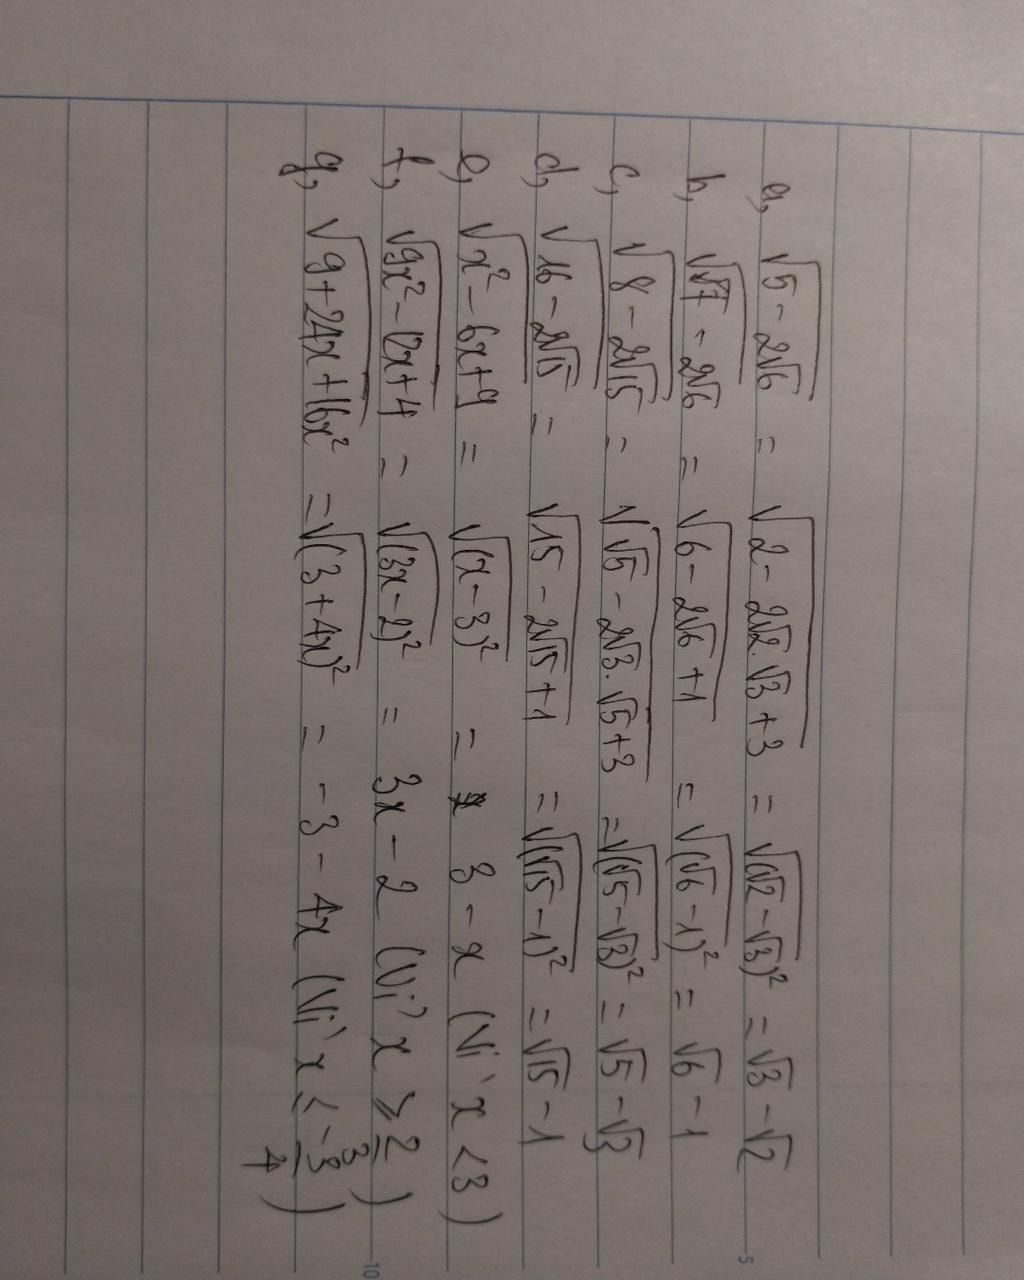 a, √(5 - 2√6) = √(2 - 2√2.√3 + 3) = √((√2 - √3)²) = √3 - √2
b, √(√7 - 2√6) = √(6 - 2√6 + 1) = √((√6 - 1)²) = √6 - 1
c, √(8 - 2√15) = √(√5 - 2√3.√5 + 3) = √((√5 - √3)²) = √5 - √3
d, √(16 - 2√15) = √(15 - 2√15 + 1) = √((√15 - 1)²) = √15 - 1
e, √(x² - 6x + 9) = √((x - 3)²) = 3 - x (Vì x < 3)
f, √(9x² - 12x + 4) = √((3x - 2)²) = 3x - 2 (Vì x ⩾ 2/3)
g, √(9 + 24x + 16x²) = √((3 + 4x)²) = - 3 - 4x (Vì x ≤ -3/4)
5
10